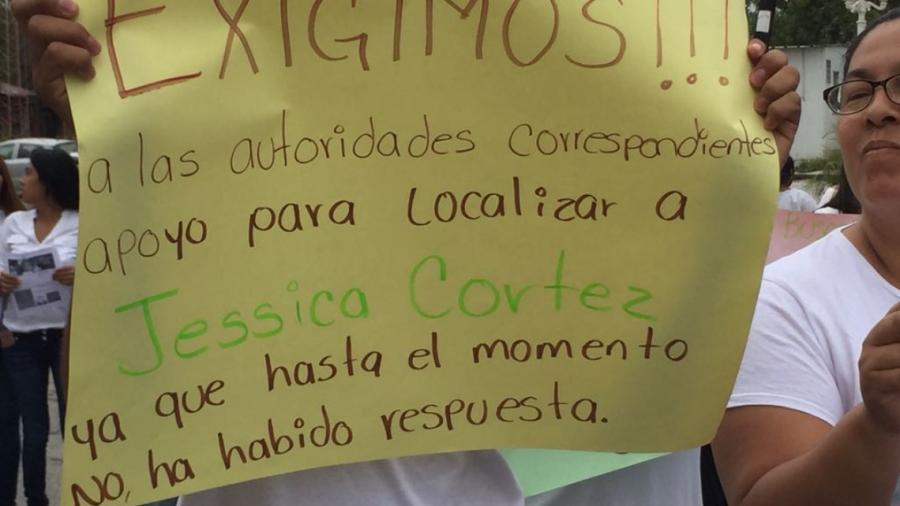 EXIGIMOS!!!
a las autoridades correspondientes
apoyo para Localizar a
Jessica Cortez
ya que hasta el momento
No, ha habido respuesta.